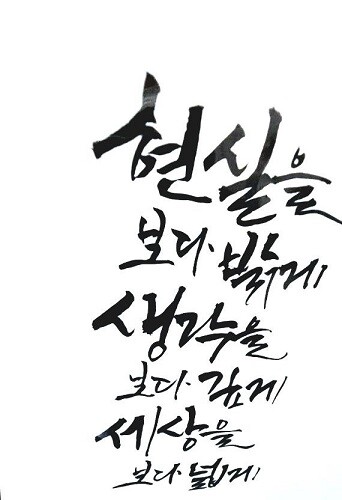 현실을
보다 밝게
생각을
보다 깊게
세상을
보다 넓게